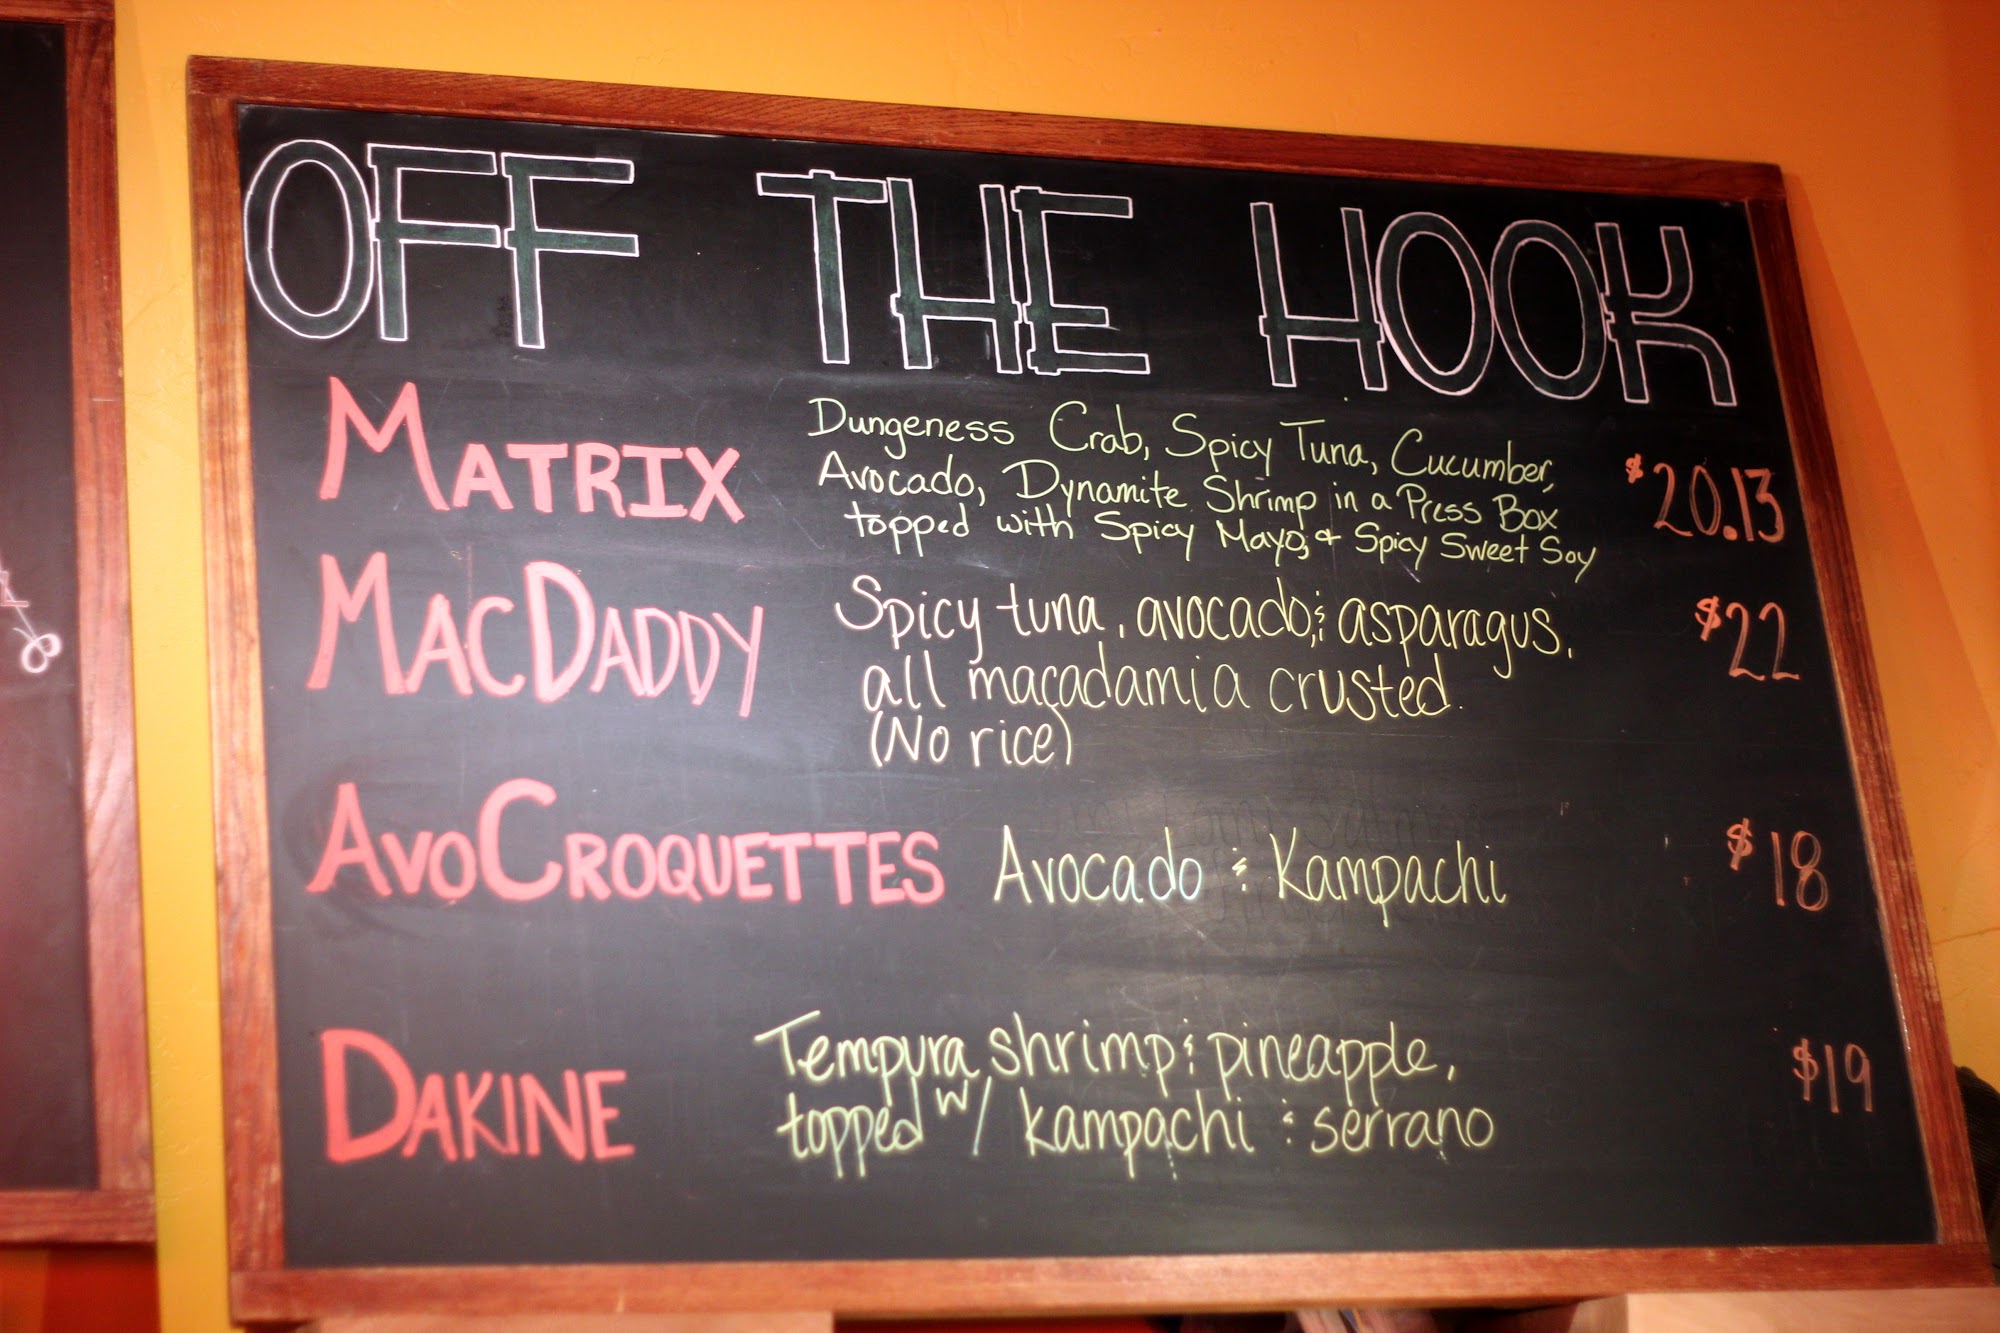 OFF THE HOOK
MATRIX
Dungeness Crab, Spicy Tuna, Cucumber,
Avocado, Dynamite Shrimp in a Press Box
topped with Spicy Mayo, & Spicy Sweet Soy
$20.13
MACDADDY
Spicy tuna, avocado, & asparagus,
all macadamia crusted.
(No rice)
$22
AVOCROQUETTES
Avocado & Kampachi
$18
DAKINE
Tempura shrimp & pineapple,
topped w/ kampachi & serrano
$19